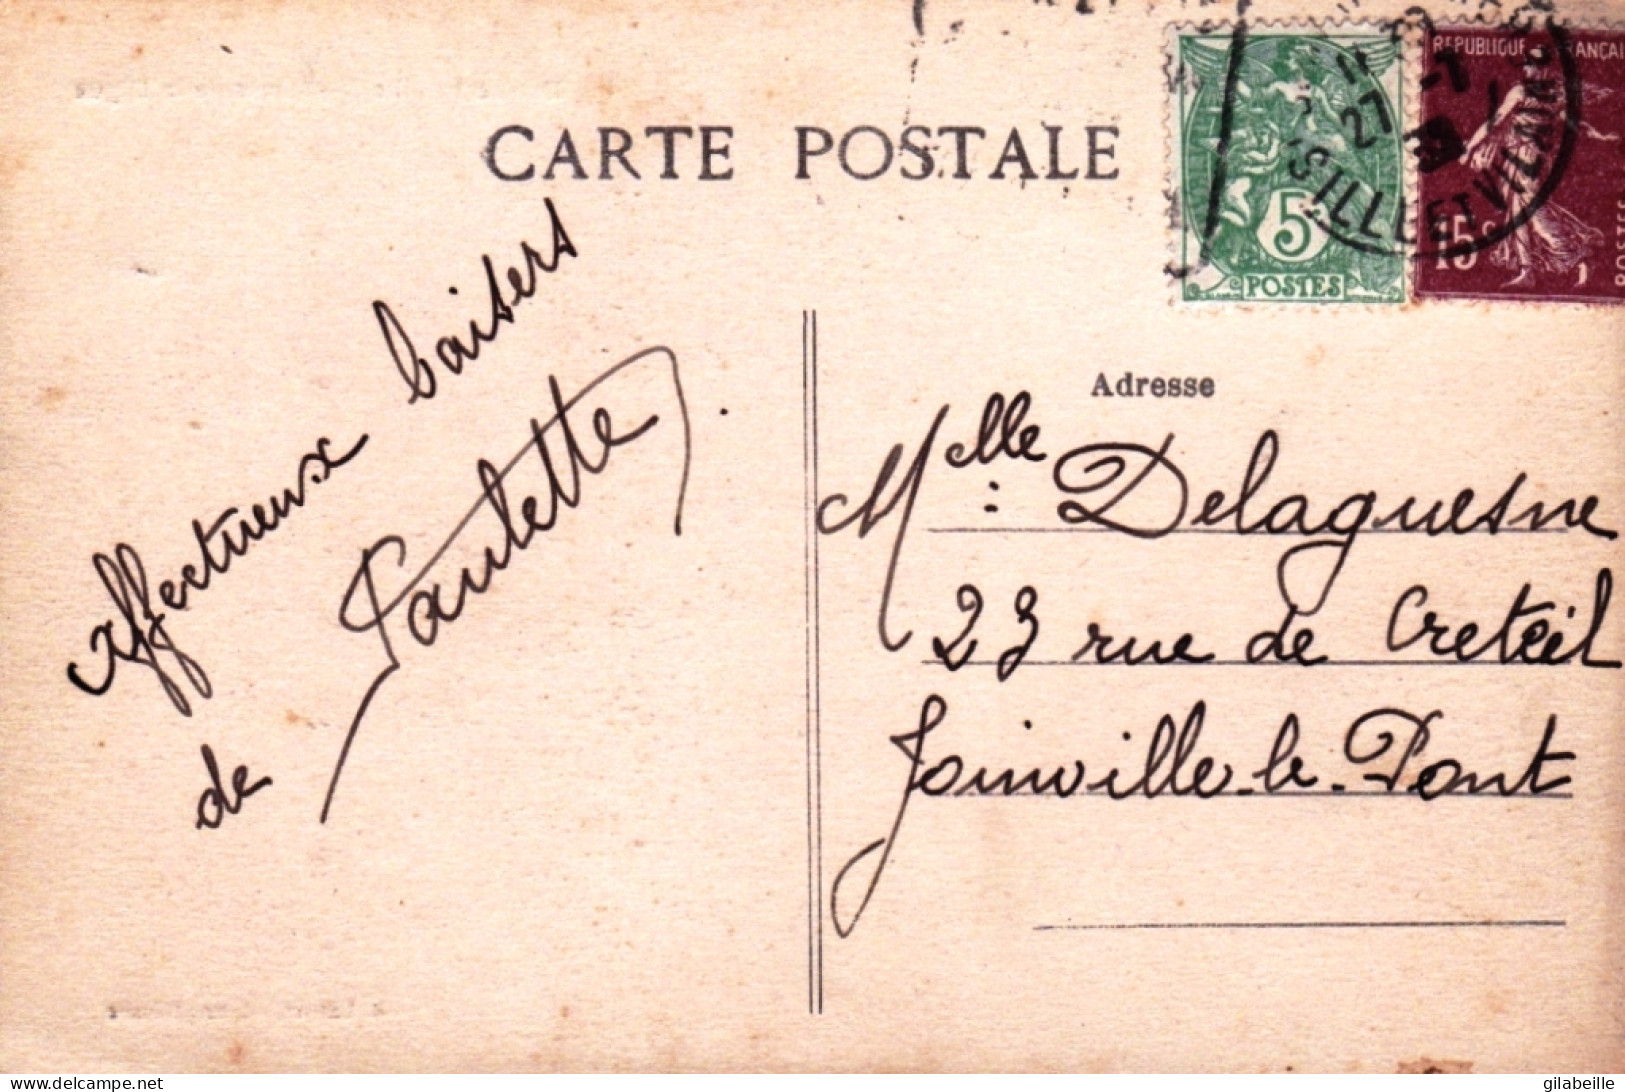 CARTE POSTALE
5
POSTES
REPUBLIQUE FRANÇAI
15 c
POSTES
27
ILLE ET VILAINE
affectueux baisers
de Paulette.
Adresse
Mlle : Delaguesne
23 rue de Creteil
Joinville-le-Pont
delcampe.net
gilabeille